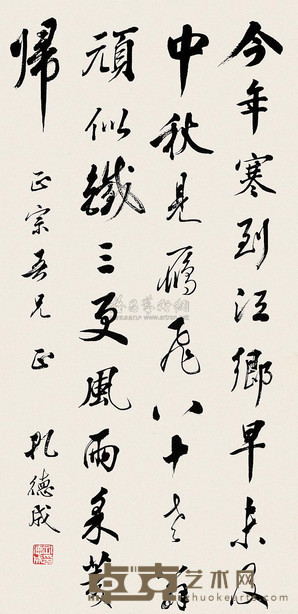 今年寒到江鄉早未及
中秋見雁飛八十老翁
頑似鐵三更風雨采菱
歸
正宗吾兄正
孔德成
卓克艺术网